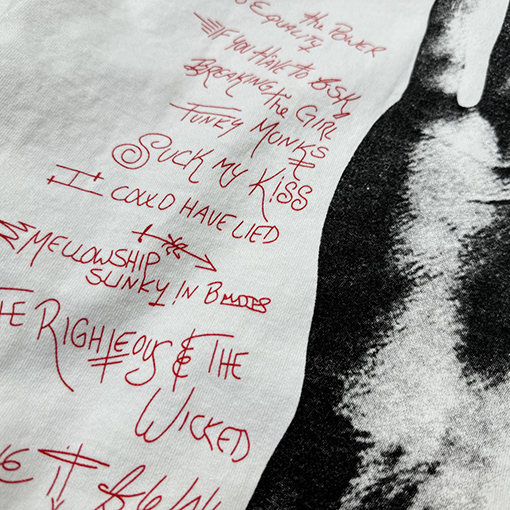 the POWER
OF EQUALITY
IF YOU HAVE TO ASK
BREAKING the GIRL
FUNKY MONKS
SUCK MY KISS
I COULD HAVE LIED
MELLOWSHIP
SLINKY IN B
THE RIGHTEOUS & THE
WICKED